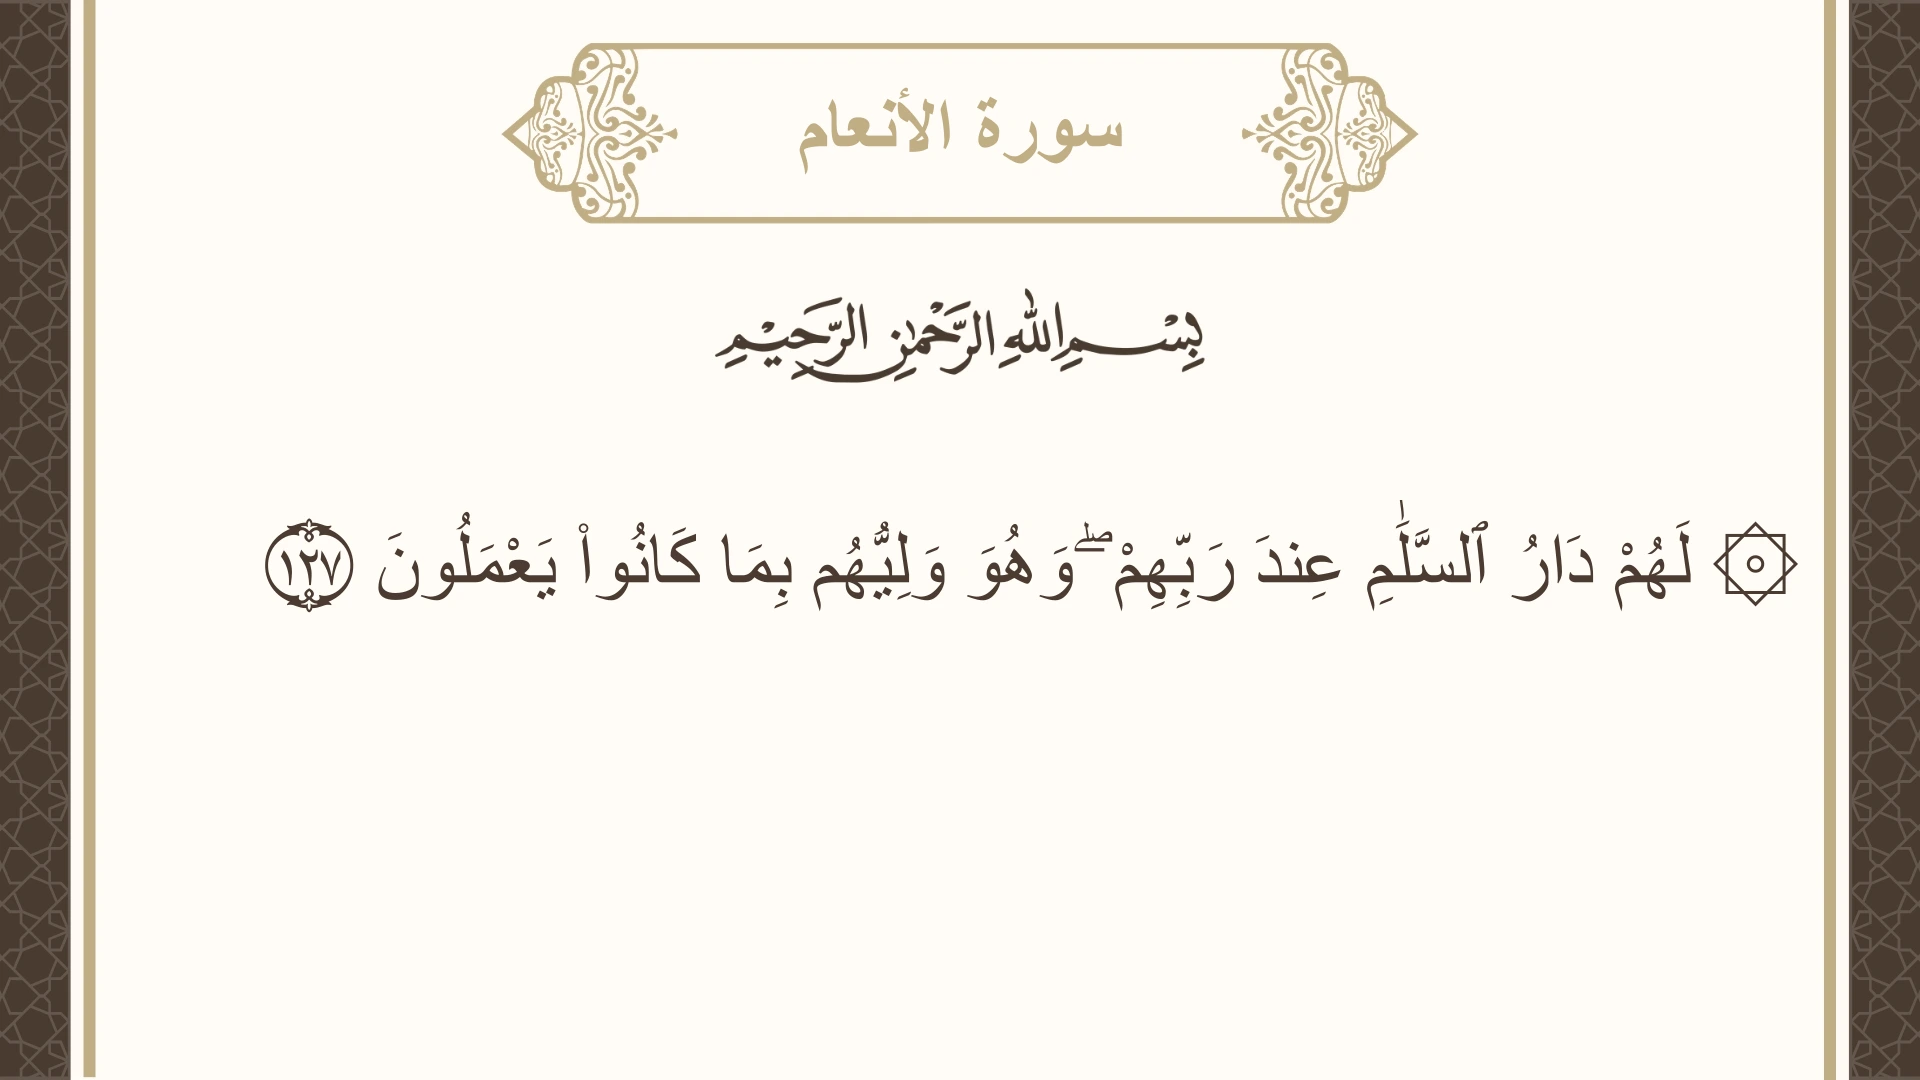 سورة الأنعام
بِسْمِ اللهِ الرَّحْمٰنِ الرَّحِيْمِ
۞ لَهُمْ دَارُ ٱلسَّلَٰمِ عِندَ رَبِّهِمْ ۖ وَهُوَ وَلِيُّهُم بِمَا كَانُوا۟ يَعْمَلُونَ ١٢٧